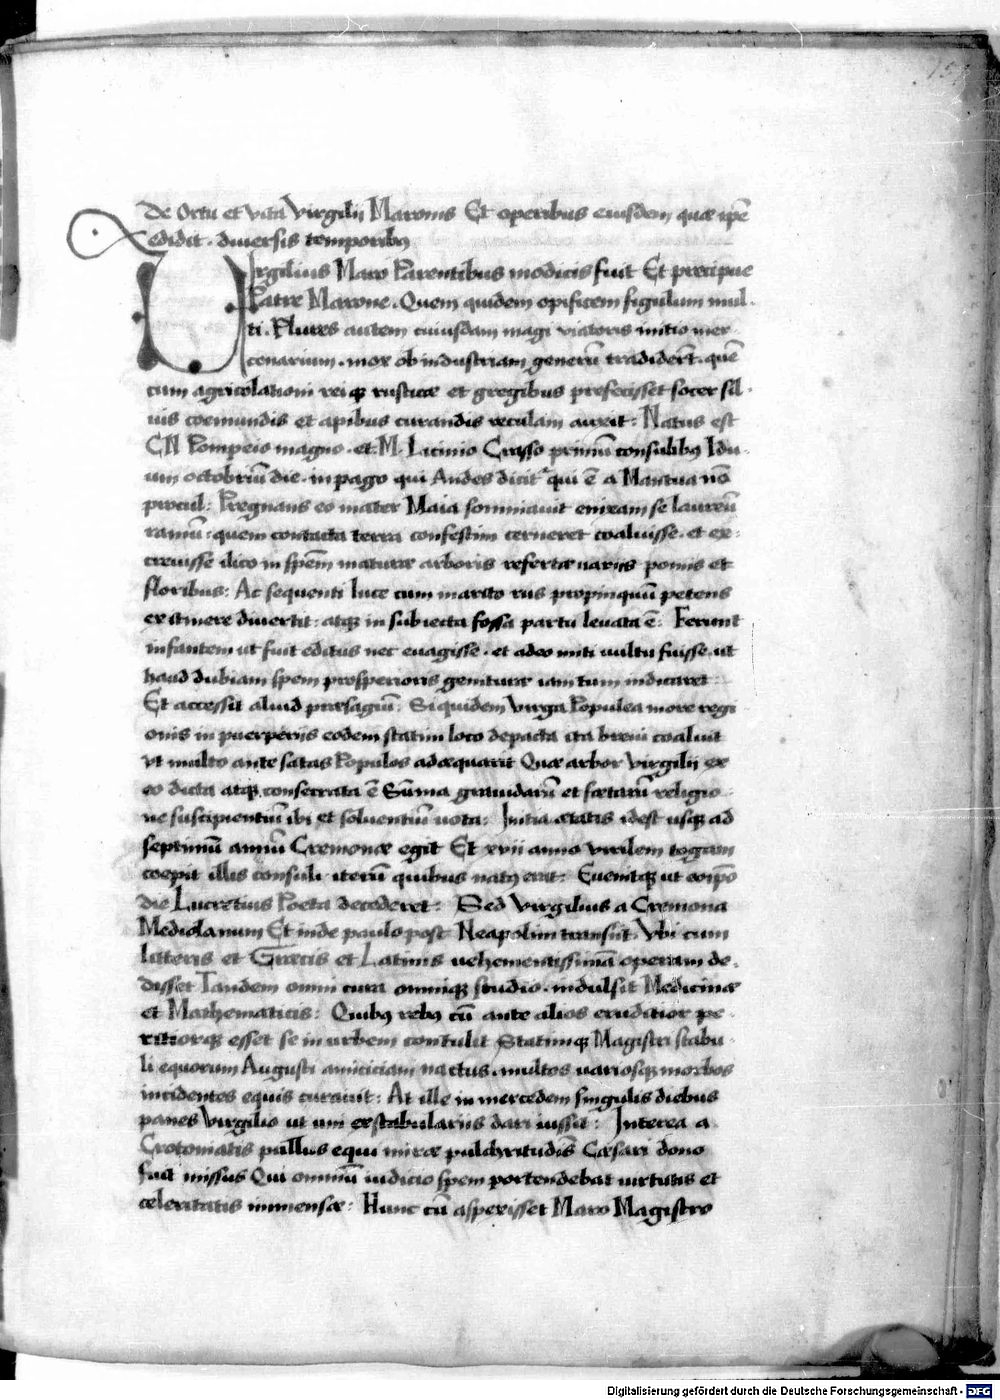 157
De Ortu et vita Virgilii Maronis Et operibus eiusdem quæ ip̄e
edidit . diuersis temporibꝰ
VIrgilius Maro Parentibus modicis fuit Et precipue
Patre Marone . Quem quidem opificem figulum mul-
ti . Plures autem cuiusdam magi viatoris initio mer
cenarium . mox ob industriam generū tradider̄t . quē
cum agricolationi reiqꝫ rusticæ et gregibus prefecisset socer sil-
uis coemundis et apibus curandis reculam auxit : Natus est
CN Pompeio magno . et . M . Licinio Crasso primū consulibꝰ Idu-
um octobriū die . in pago qui Andes dicit᷑ qui ē a Mantua nō
procul : Pregnans eo mater Maia somniauit enixam se laureū
ramū : quem contacta terra confestim cerneret coaluisse . et ex-
creuisse ilico in sp̄em maturæ arboris refertæ uariis pomis et
floribus : Ac sequenti luce cum marito rus propinquū petens
ex itinere diuertit : atqꝫ in subiecta fossa partu leuata ē : Ferunt
infantem ut fuit editus nec euagisse . et adeo miti uultu fuisse . ut
haud dubiam spem prosperioris genituræ iam tum indicaret :
Et accessit aliud præsagiū : Siquidem Virga Populea more regi
onis in puerperiis eodem statim loco depacta ita breui coaluit
vt multo ante satas Populos adæquarit Quæ arbor Virgilii ex
eo dicta atqꝫ consecrata ē Sūma grauidarū et fœtarū religio-
ne suscipientiū ibi et soluentiū uota : Initia ætatis idest usqꝫ ad
septimū annū Cremonæ egit Et xvii anno virilem togam
coepit illis consuli . iterū quibus natꝰ erat : Euenitqꝫ ut eo ip̄o
die Lucretius Poeta decederet : Sed Virgilius a Cremona
Mediolanum Et inde paulo post Neapolim transiit . Vbi cum
litteris et Græcis et Latinis uehementissimā operam de-
disset Tandem omni cura omniqꝫ studio . indulsit Medicinæ
et Mathematicis : Quibꝰ rebꝰ cū ante alios eruditior pe-
ritiorqꝫ esset se in urbem contulit Statimqꝫ Magistri stabu-
li equorum Augusti amiciciam nactus . multos uariosqꝫ morbos
incidentes equis curauit : At ille in mercedem singulis diebus
panes Virgilio ut uni ex stabulariis dari iussit : Interea a
Crotoniatis pullus equi miræ pulchritudinis Cæsari dono
fuit missus Qui omniū iudicio spem portendebat uirtutis et
celeritatis inmensæ : Hunc cū aspexisset Maro Magistro
Digitalisierung gefördert durch die Deutsche Forschungsgemeinschaft - DFG